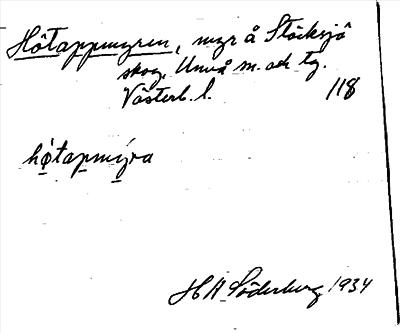 Hötappmyren, myr å Stöcksjö
skog, Umeå m. och tg.
Västerb. l. 118
hötapmýra
H A Söderberg 1934